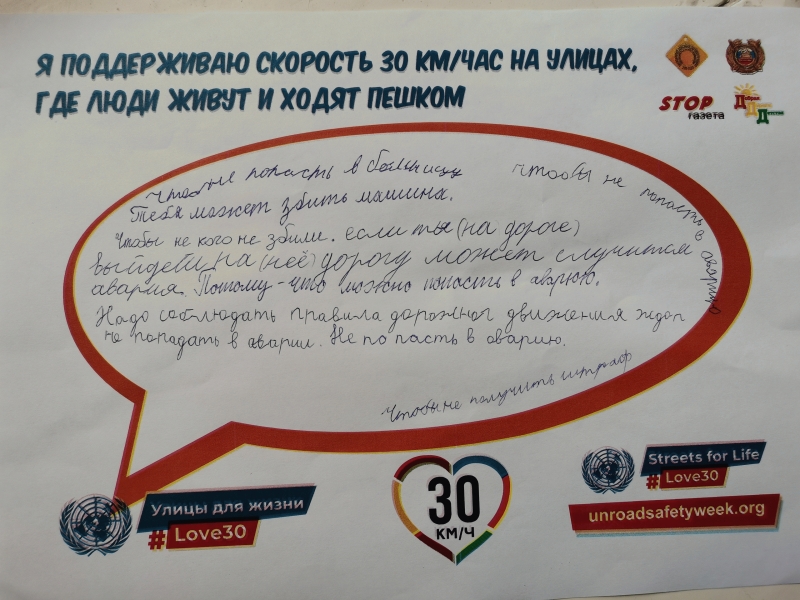 Я ПОДДЕРЖИВАЮ СКОРОСТЬ 30 КМ/ЧАС НА УЛИЦАХ,
ГДЕ ЛЮДИ ЖИВУТ И ХОДЯТ ПЕШКОМ
STOP
газета
Добрая
Дорога
Детства
попасть в больницу
чтобы не попасть в аварию
Тебя может збить машина.
Чтобы не кого не збили. если ты (на дороге)
выйдеш на (неё) дорогу может случится
авария. Потому-что можно попасть в аварию.
Надо соблюдать правила дорожног движения
не попадать в аварии. Не попасть в аварию.
Чтобы не получить штраф
Улицы для жизни
#Love30
30
КМ/Ч
Streets for Life
#Love30
unroadsafetyweek.org